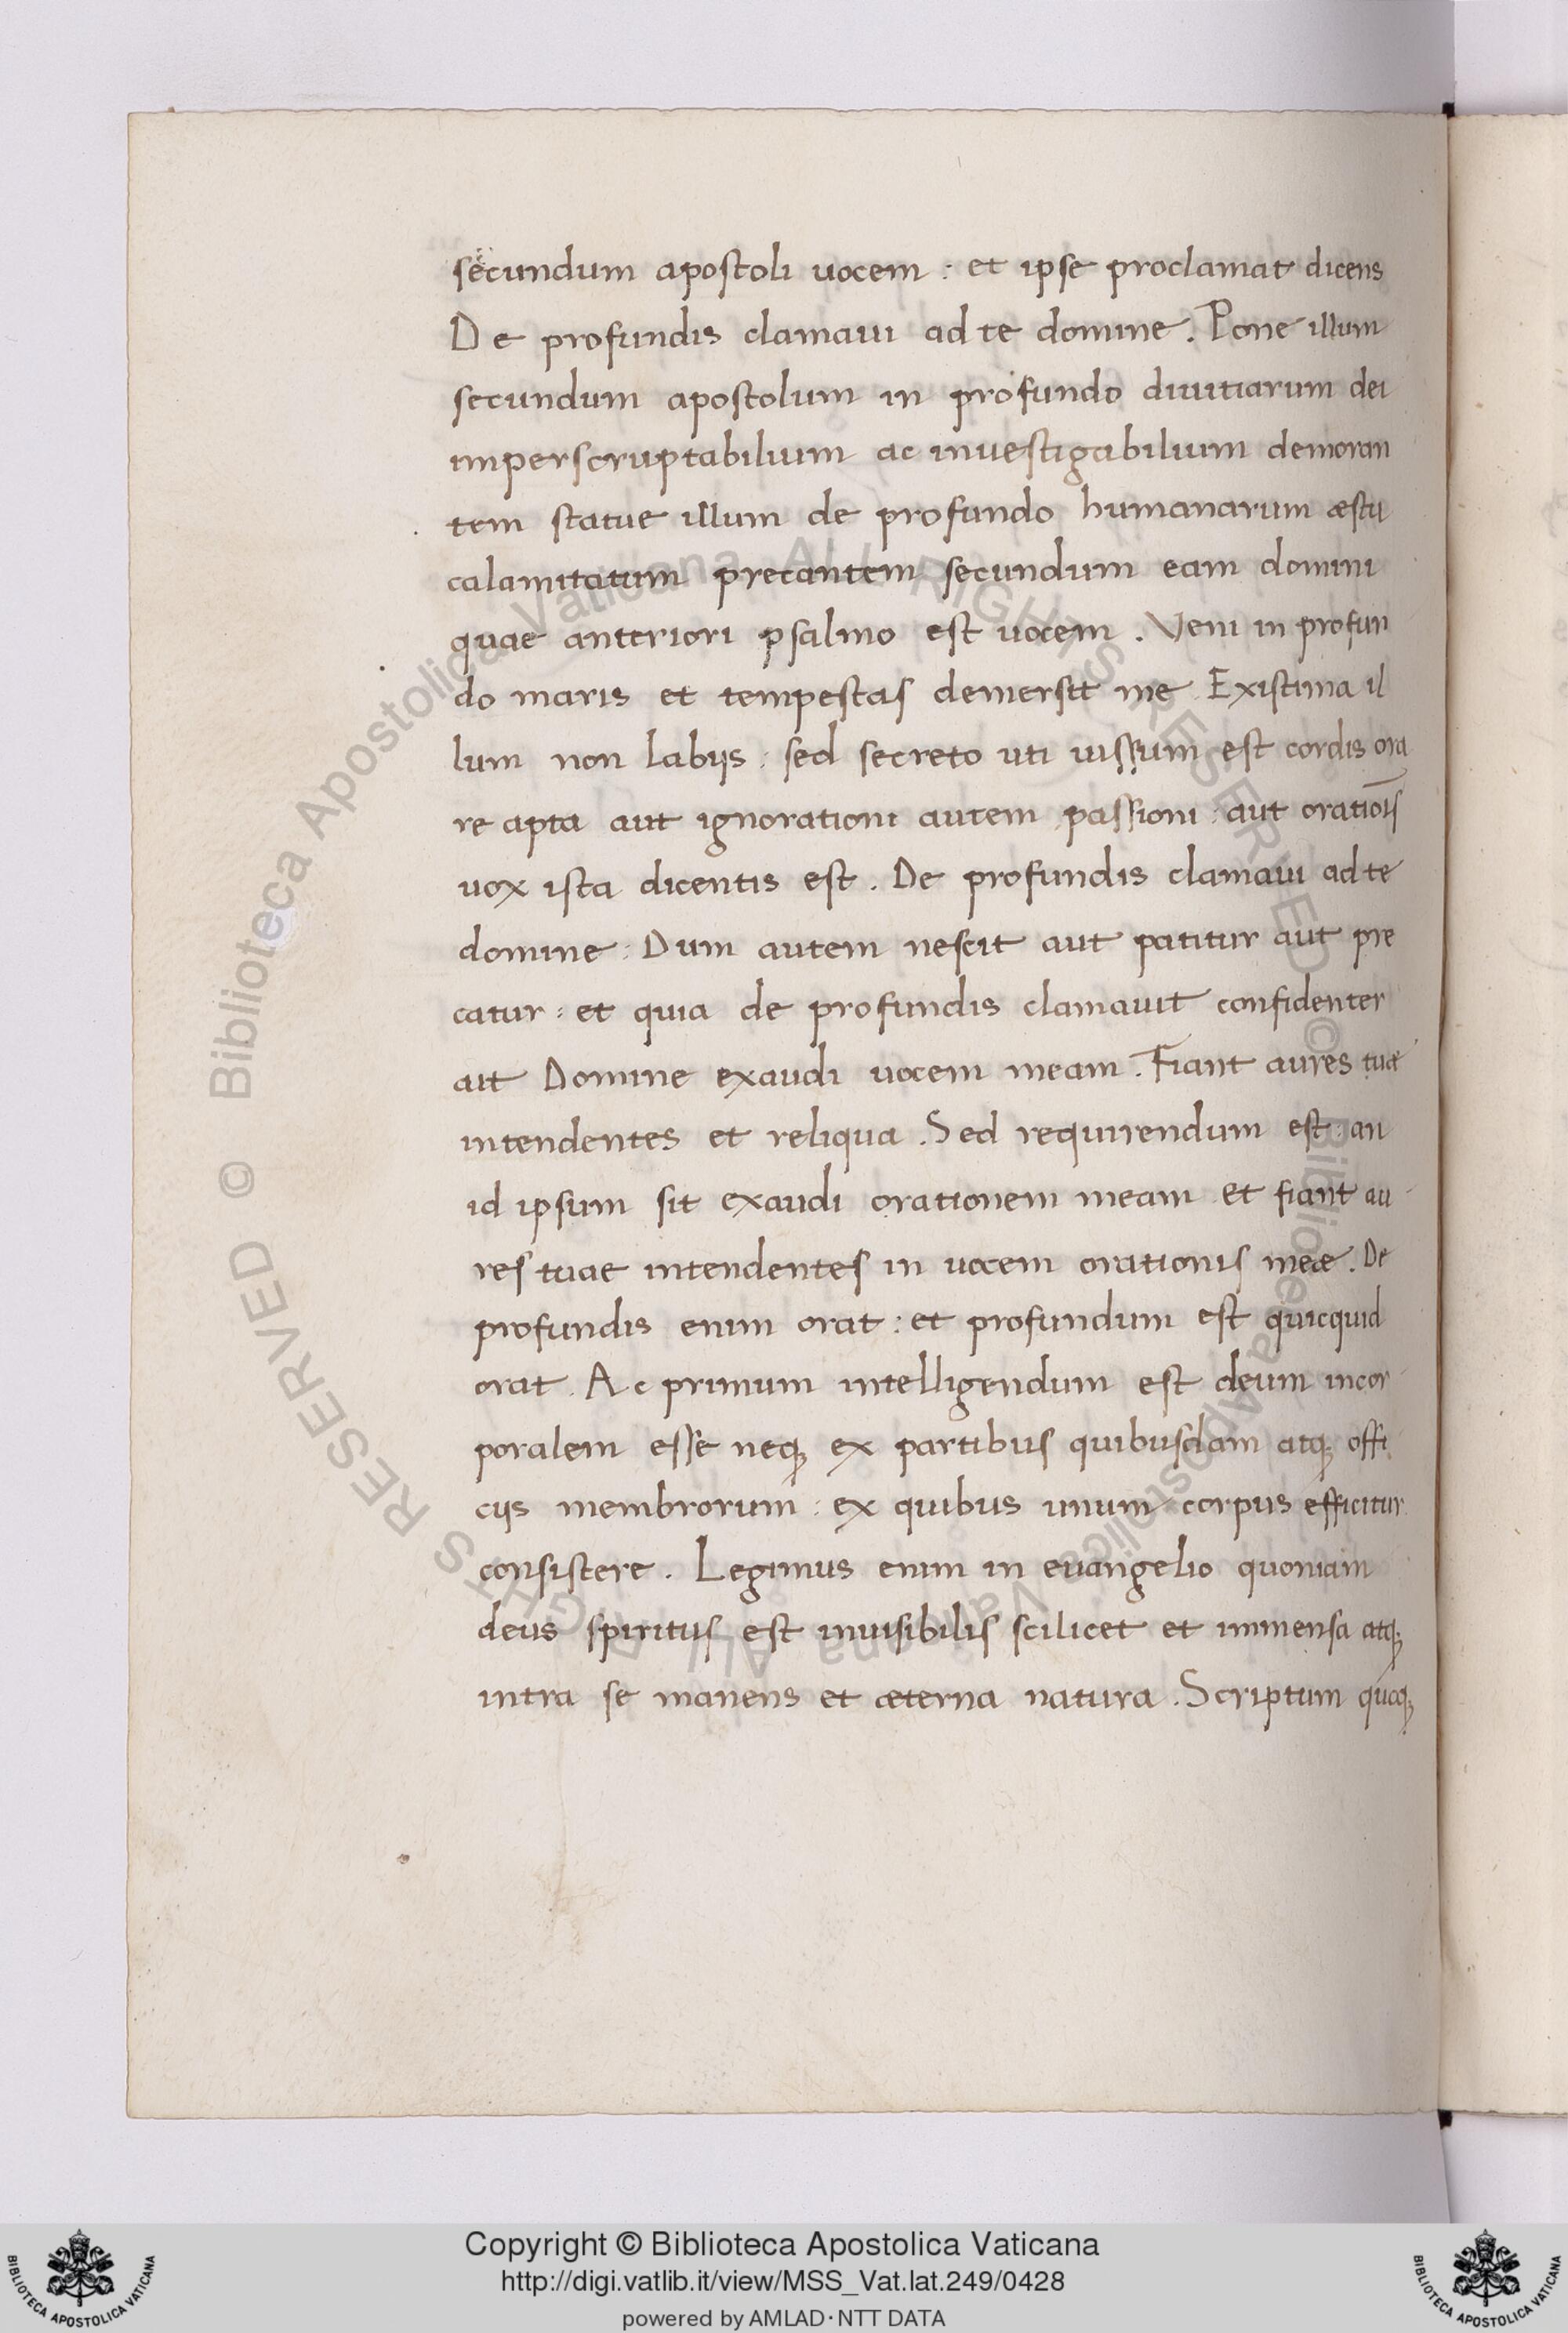 secundum apostoli uocem : et ipse proclamat dicens
De profundis clamaui ad te domine . Pone illum
secundum apostolum in profundo diuitiarum dei
imperscruptabilium ac inuestigabilium demoran
tem statue illum de profundo humanarum æstu
calamitatum precantem secundum eam domini
quae anteriori psalmo est uocem . Veni in profun
do maris et tempestas demersit me . Existima il
lum non labijs : sed secreto uti uissum est cordis ora
re apta aut ignorationi autem passioni : aut orationis
uox ista dicentis est . De profundis clamaui ad te
domine : Dum autem nescit aut patitur aut pre
catur : et quia de profundis clamauit confidenter
ait Domine exaudi uocem meam . Fiant aures tuæ
intendentes et reliqua . Sed requirendum est : an
id ipsum sit exaudi orationem meam et fiant au
res tuae intendentes in uocem orationis meæ . De
profundis enim orat : et profundum est quicquid
orat . Ac primum intelligendum est deum incor
poralem esse neq; ex partibus quibusdam atq; offi
cijs membrorum : ex quibus unum corpus efficitur
consistere . Legimus enim in euangelio quoniam
deus spiritus est inuisibilis scilicet et immensa atq;
intra se manens et æterna natura . Scriptum quoq;
© Biblioteca Apostolica Vaticana ALL RIGHTS RESERVED © Biblioteca Apostolica Vaticana ALL RIGHTS RESERVED
Copyright © Biblioteca Apostolica Vaticana
http://digi.vatlib.it/view/MSS_Vat.lat.249/0428
powered by AMLAD·NTT DATA
BIBLIOTECA APOSTOLICA VATICANA
BIBLIOTECA APOSTOLICA VATICANA